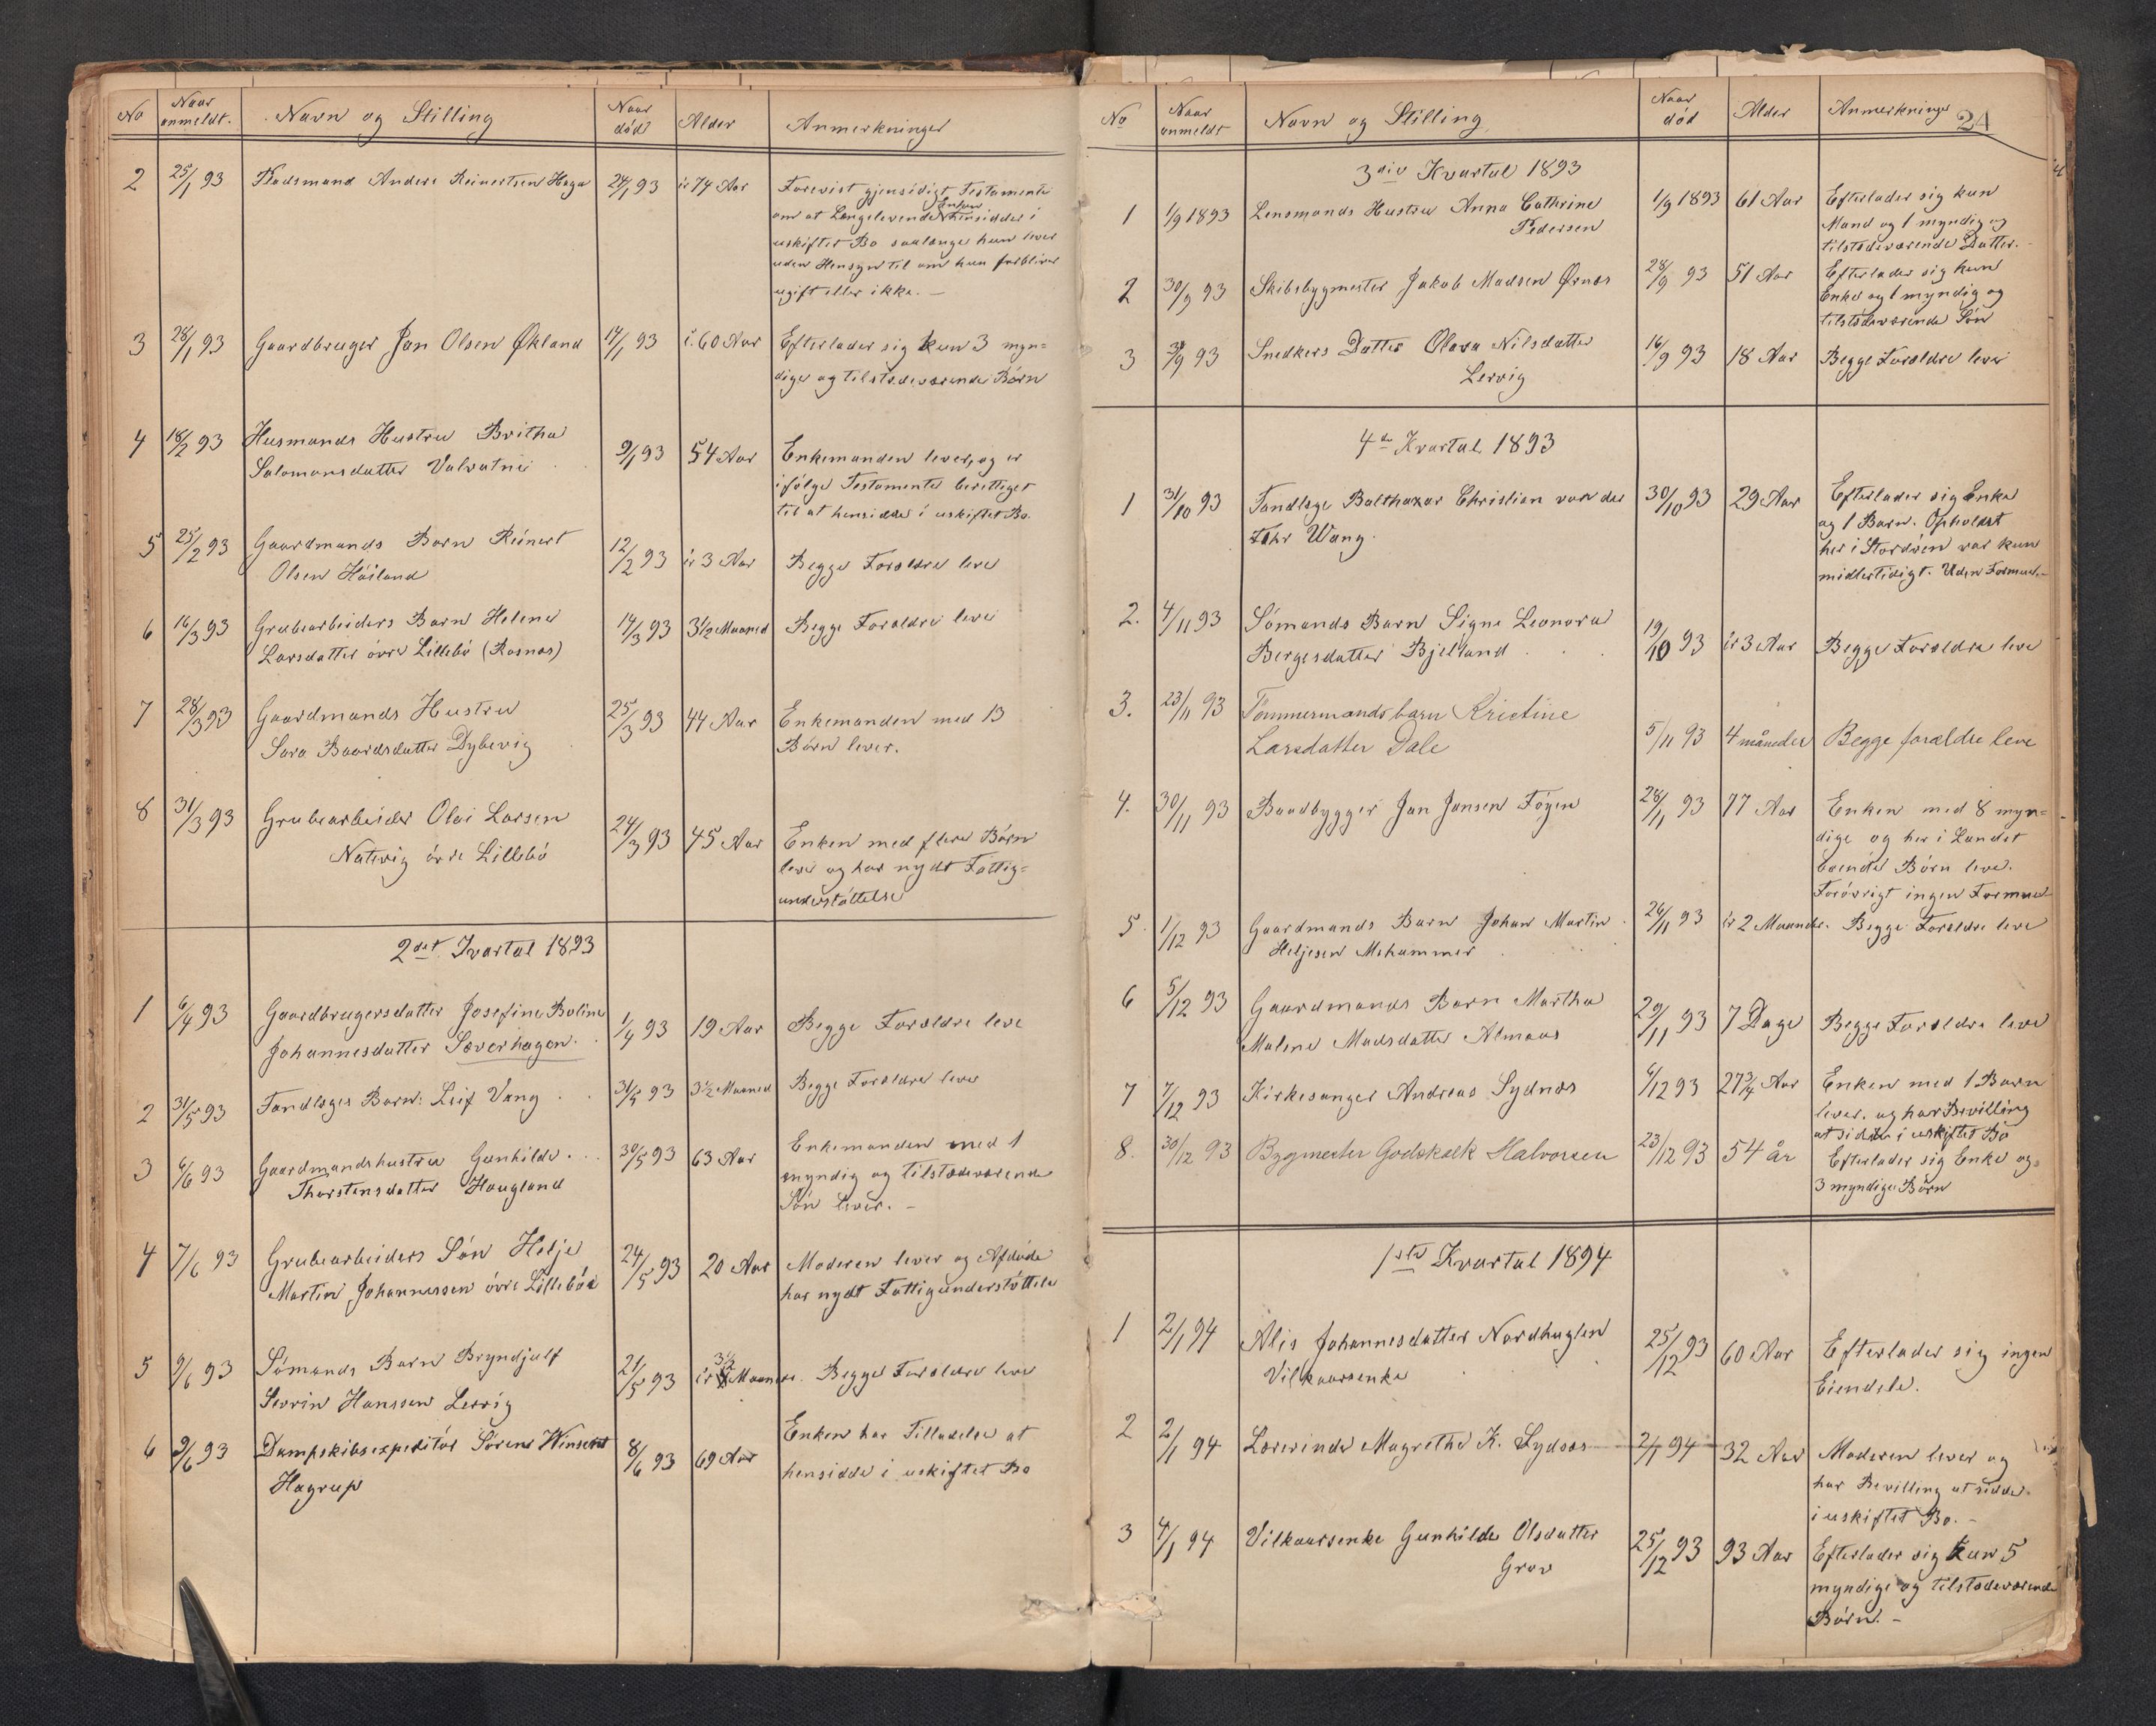 No | Naar anmeldt. | Navn og Stilling | Naar död | Alder | Anmerkninger
2 | 25/1 93 | Pladsmand Anders Reinertsen Haga | 24/1 93 | ir 74 Aar | Forevist gjensidigt Testamente
om at Længstlevende Enken hensidder i
uskiftet Bo saalænge hun lever
uden Hensyn til om hun forbliver
ugift eller ikke. —
3 | 28/1 93 | Gaardbruger Jan Olsen Økland | 14/1 93 | i. 60 Aar | Efterlader sig kun 3 myn=
dige og tilstedeværende Børn
4 | 18/2 93 | Husmands Hustru Britha
Salomonsdatter Valvatne | 9/1 93 | 54 Aar | Enkemanden lever, og er
ifölge Testamente berettiget
til at hensidde i uskiftet Bo.
5 | 25/2 93 | Gaardmands Barn Reinert
Olsen Höiland | 12/2 93 | ir 3 Aar | Begge Forældre leve
6 | 16/3 93 | Grubearbeiders Barn Helene
Larsdatter övre Lillebö (Rosnæs) | 14/3 93 | 3½ Maaned | Begge Forældre lever
7 | 28/3 93 | Gaardmands Hustru
Sara Baardsdatter Dybevig | 25/3 93 | 44 Aar | Enkemanden med 13
Börn lever.
8 | 31/3 93 | Grubearbeider Olai Larsen
Natvig övre Lillebö | 24/3 93 | 45 Aar | Enken med flere Börn
lever og har nydt Fattig=
understöttelse
2det Kvartal 1893
1 | 6/4 93 | Gaardbrugersdatter Josefine Boline
Johannesdatter Sæverhagen. | 1/4 93 | 19 Aar | Begge Forældre leve
2 | 31/5 93 | Tandlæges Barn: Leif Vang | 31/5 93 | 3½ Maaned | Begge Forældre lever
3 | 6/6 93 | Gaardmandshustru Gunhilde
Thorstensdatter Hougland | 30/5 93 | 63 Aar | Enkemanden med 1
myndig og tilstedeværende
Sön lever. —
4 | 7/6 93 | Grubearbeiders Sön Helje
Martin Johannessen övre Lillebö | 24/5 93 | 20 Aar | Moderen lever og Afdøde
har nydt Fattigunderstöttelse
5 | 9/6 93 | Sömands Barn Bryndjulf
Severin Hanssen Lervig | 21/5 93 | ir 3½ Maaneder. | Begge Forældre leve
6 | 9/6 93 | Dampskibsexpeditör Sörens Winsents
Hagrup | 8/6 93 | 69 Aar | Enken har Tilladelse at
hensidde i uskiftet Bo
No | Naar anmeldt | Navn og Stilling | Naar död | Alder | Anmerkninger
24
3die Kvartal 1893
1 | 1/9 1893 | Lensmands Hustru Anna Cathrine
Pedersen | 1/9 1893 | 61 Aar | Efterlader sig kun
Mand og 1 myndig og
tilstedeværende Datter. —
2 | 30/9 93 | Skibsbygmester Jakob Madsen Ørnæs | 28/9 93 | 51 Aar | Efterlader sig kun
Enke og 1 myndig og
tilstedeværende Sön
3 | 30/9 93 | Snedkers Datter Olava Nilsdatter
Lervig | 16/9 93 | 18 Aar | Begge Forældre lever
4de Kvartal 1893
1 | 31/10 93 | Tandlæge Balthazar Christian van der
Fehr Wang. | 30/10 93 | 29 Aar | Efterlader sig Enke
og 1 Barn. Opholdet
her i Stordöen var kun
midlertidigt. Uden Formue. —
2. | 4/11 93 | Sömands Barn Signe Leonora
Bergesdatter Bjelland | 19/10 93 | ir 3 Aar | Begge Forældre leve
3. | 23/11 93 | Tömmermandsbarn Kristine
Larsdatter Dale | 5/11 93 | 4 måneder | Begge forældre leve
4. | 30/11 93 | Baadbygger Jan Jansen Töyen | 28/11 93 | 77 Aar | Enken med 8 myn=
dige og her i Landet
boende Börn leve.
Forövrigt ingen Formue
5. | 1/12 93 | Gaardmands Barn Johan Martin
Heljesen Mehammer | 26/11 93 | ir 2 Maaneder. | Begge Forældre leve
6 | 5/12 93 | Gaardmands Barn Martha
Malene Madsdatter Almaas | 29/11 93 | 7 Dage | Begge Forældre leve
7 | 7/12 93 | Kirkesanger Andreas Sydnæs | 6/12 93 | 27¾ Aar | Enken med 1 Barn
lever. og har Bevilling
at sidde i uskiftet Bo
8. | 30/12 93 | Bygmester Godskalk Halvorsen | 23/12 93 | 54 år | Efterlader sig Enke og
3 myndige Börn
1ste Kvartal 1894
1 | 2/1 94 | Alis Johannesdatter Nordhuglen
Vilkaarsenke | 25/12 93 | 60 Aar | Efterlader sig ingen
Eiendele.
2 | 2/1 94 | Lærerinde Magrethe K. Sydnæs | 2/1 94 | 32 Aar | Moderen lever og
har Bevilling at sidde
i uskiftet Bo. —
3 | 4/1 94 | Vilkaarsenke Gunhilde Olsdatter
Grov | 25/12 93 | 93 Aar | Efterlader sig kun 5
myndige og tilstedeværende
Börn. —